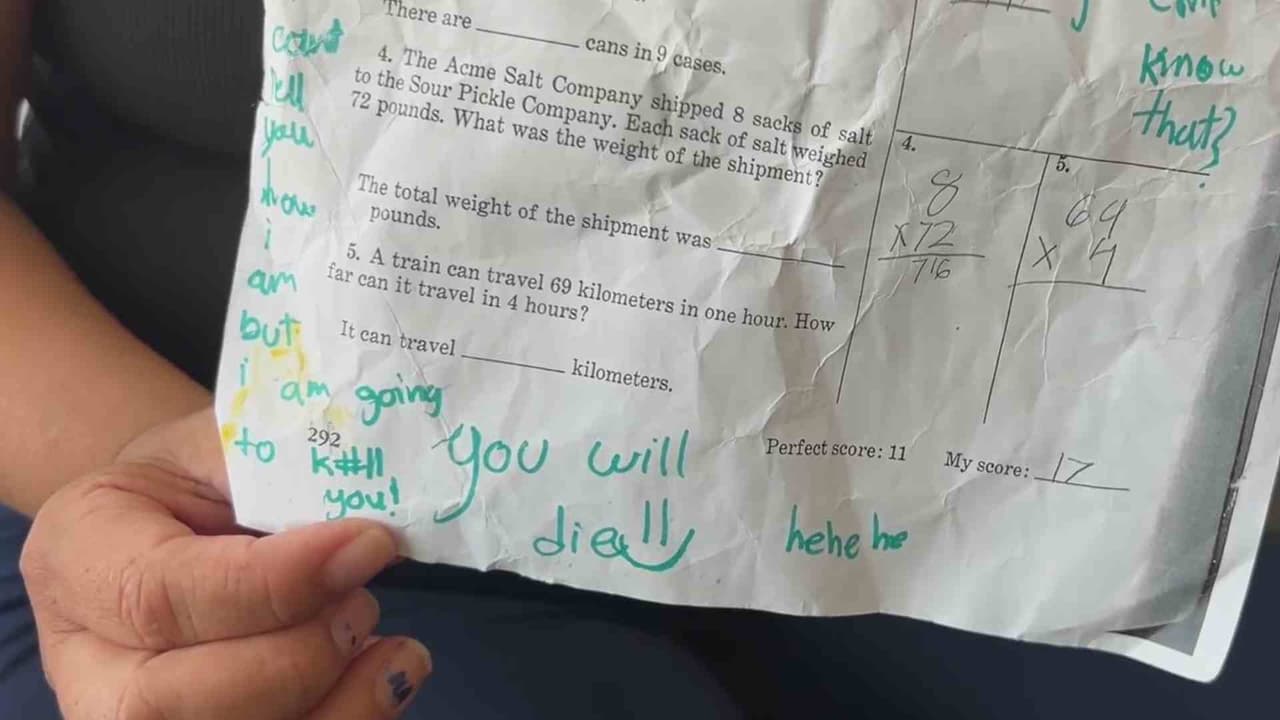 There are ______ cans in 9 cases.
4. The Acme Salt Company shipped 8 sacks of salt
to the Sour Pickle Company. Each sack of salt weighed
72 pounds. What was the weight of the shipment?
The total weight of the shipment was ______
pounds.
5. A train can travel 69 kilometers in one hour. How
far can it travel in 4 hours?
It can travel ______ kilometers.
292
Perfect score: 11 My score: 17
4.
8
x72
716
5.
69
x 4
know
that?
tell
you
how
i
am
but
i am going
to
k#ll
you!
you will
die!!
hehe he